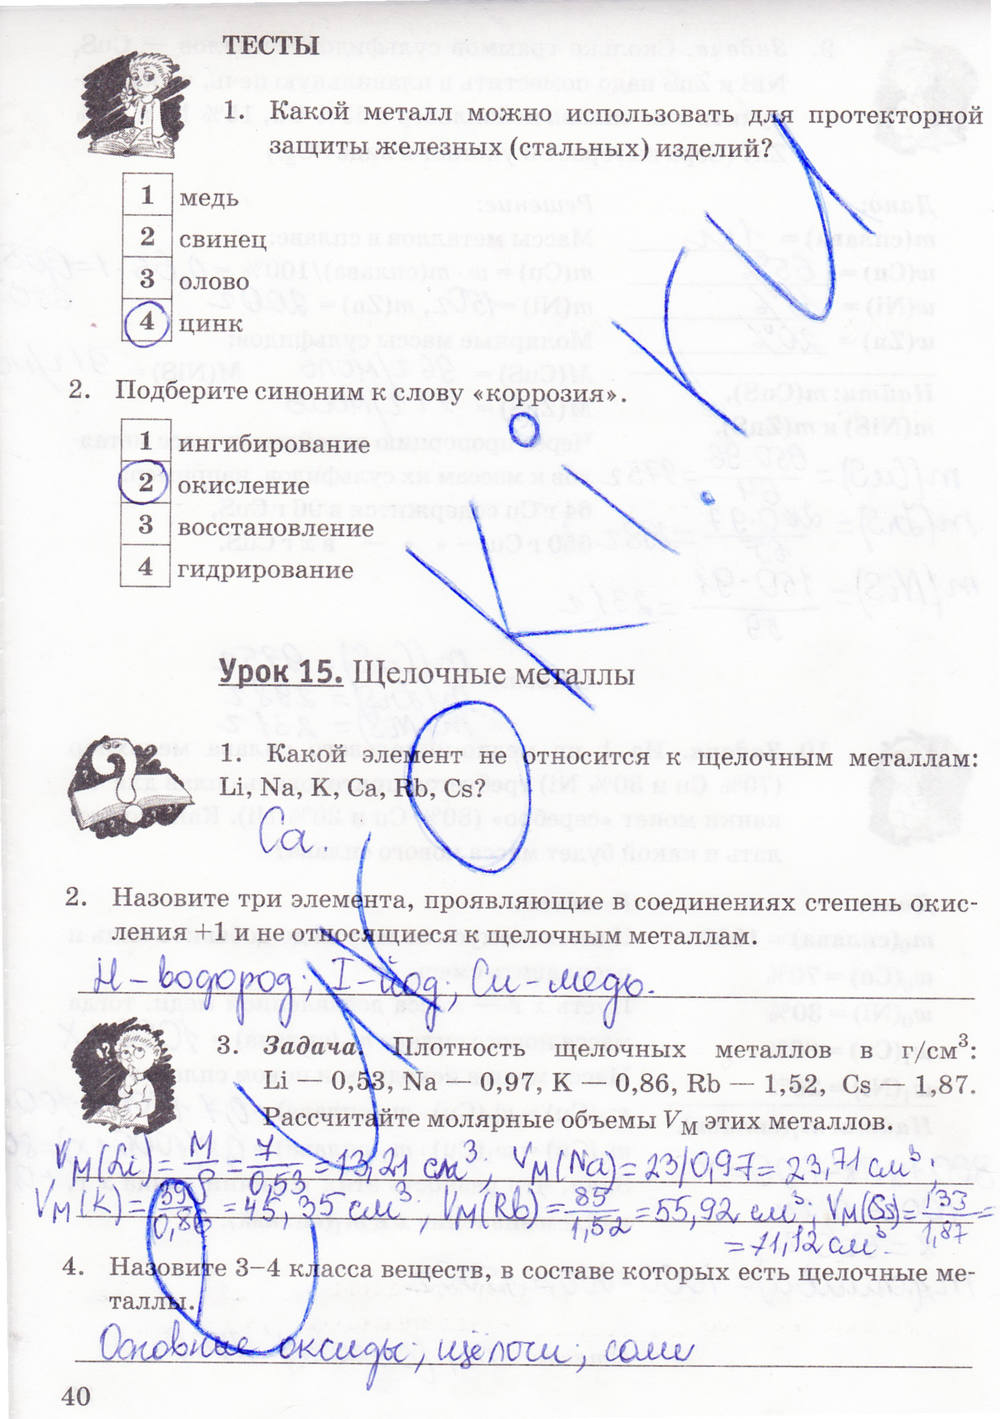 ТЕСТЫ
1. Какой металл можно использовать для протекторной
защиты железных (стальных) изделий?
1 медь
2 свинец
3 олово
4 цинк
2. Подберите синоним к слову «коррозия».
1 ингибирование
2 окисление
3 восстановление
4 гидрирование
Урок 15. Щелочные металлы
1. Какой элемент не относится к щелочным металлам:
Li, Na, K, Ca, Rb, Cs?
Ca.
2. Назовите три элемента, проявляющие в соединениях степень окис-
ления +1 и не относящиеся к щелочным металлам.
H - водород; I - йод; Cu - медь.
3. Задача. Плотность щелочных металлов в г/см³:
Li — 0,53, Na — 0,97, K — 0,86, Rb — 1,52, Cs — 1,87.
Рассчитайте молярные объемы VM этих металлов.
VM(Li) = M/ρ = 7/0,53 = 13,21 см³; VM(Na) = 23/0,97 = 23,71 см³;
VM(K) = 39/0,86 = 45,35 см³; VM(Rb) = 85/1,52 = 55,92 см³; VM(Cs) = 133/1,87 =
= 71,12 см³.
4. Назовите 3–4 класса веществ, в составе которых есть щелочные ме-
таллы.
Основные оксиды; щёлочи; соли
40